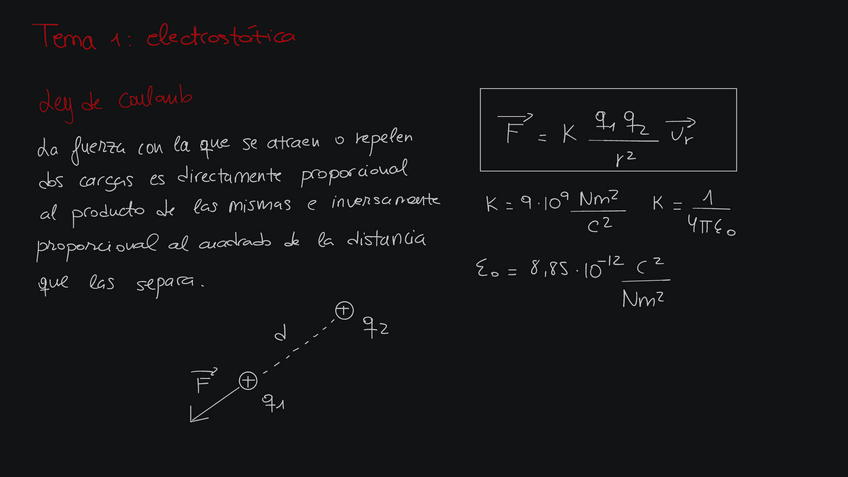 Tema 1: electrostática
Ley de Coulomb
La fuerza con la que se atraen o repelen
dos cargas es directamente proporcional
al producto de las mismas e inversamente
proporcional al cuadrado de la distancia
que las separa.
F = K q1 q2 / r² Ur
K = 9·10⁹ Nm²/C² K = 1/4πε₀
ε₀ = 8,85·10⁻¹² C²/Nm²
d
q2
F
q1